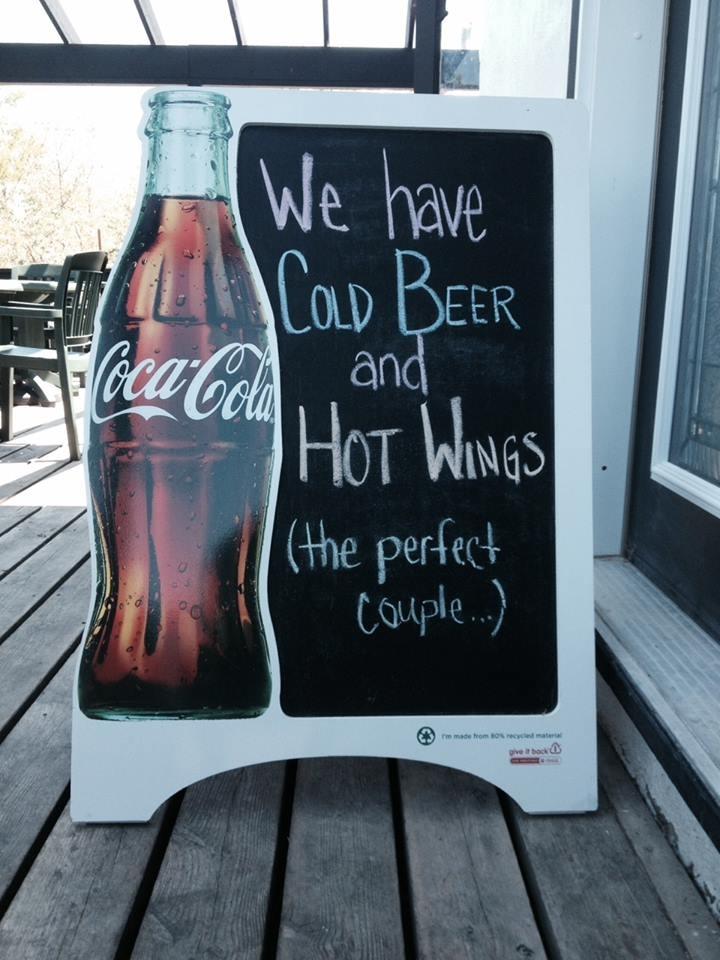 Coca-Cola
We have
COLD BEER
and
HOT WINGS
(the perfect
couple...)
I'm made from 80% recycled material
give it back